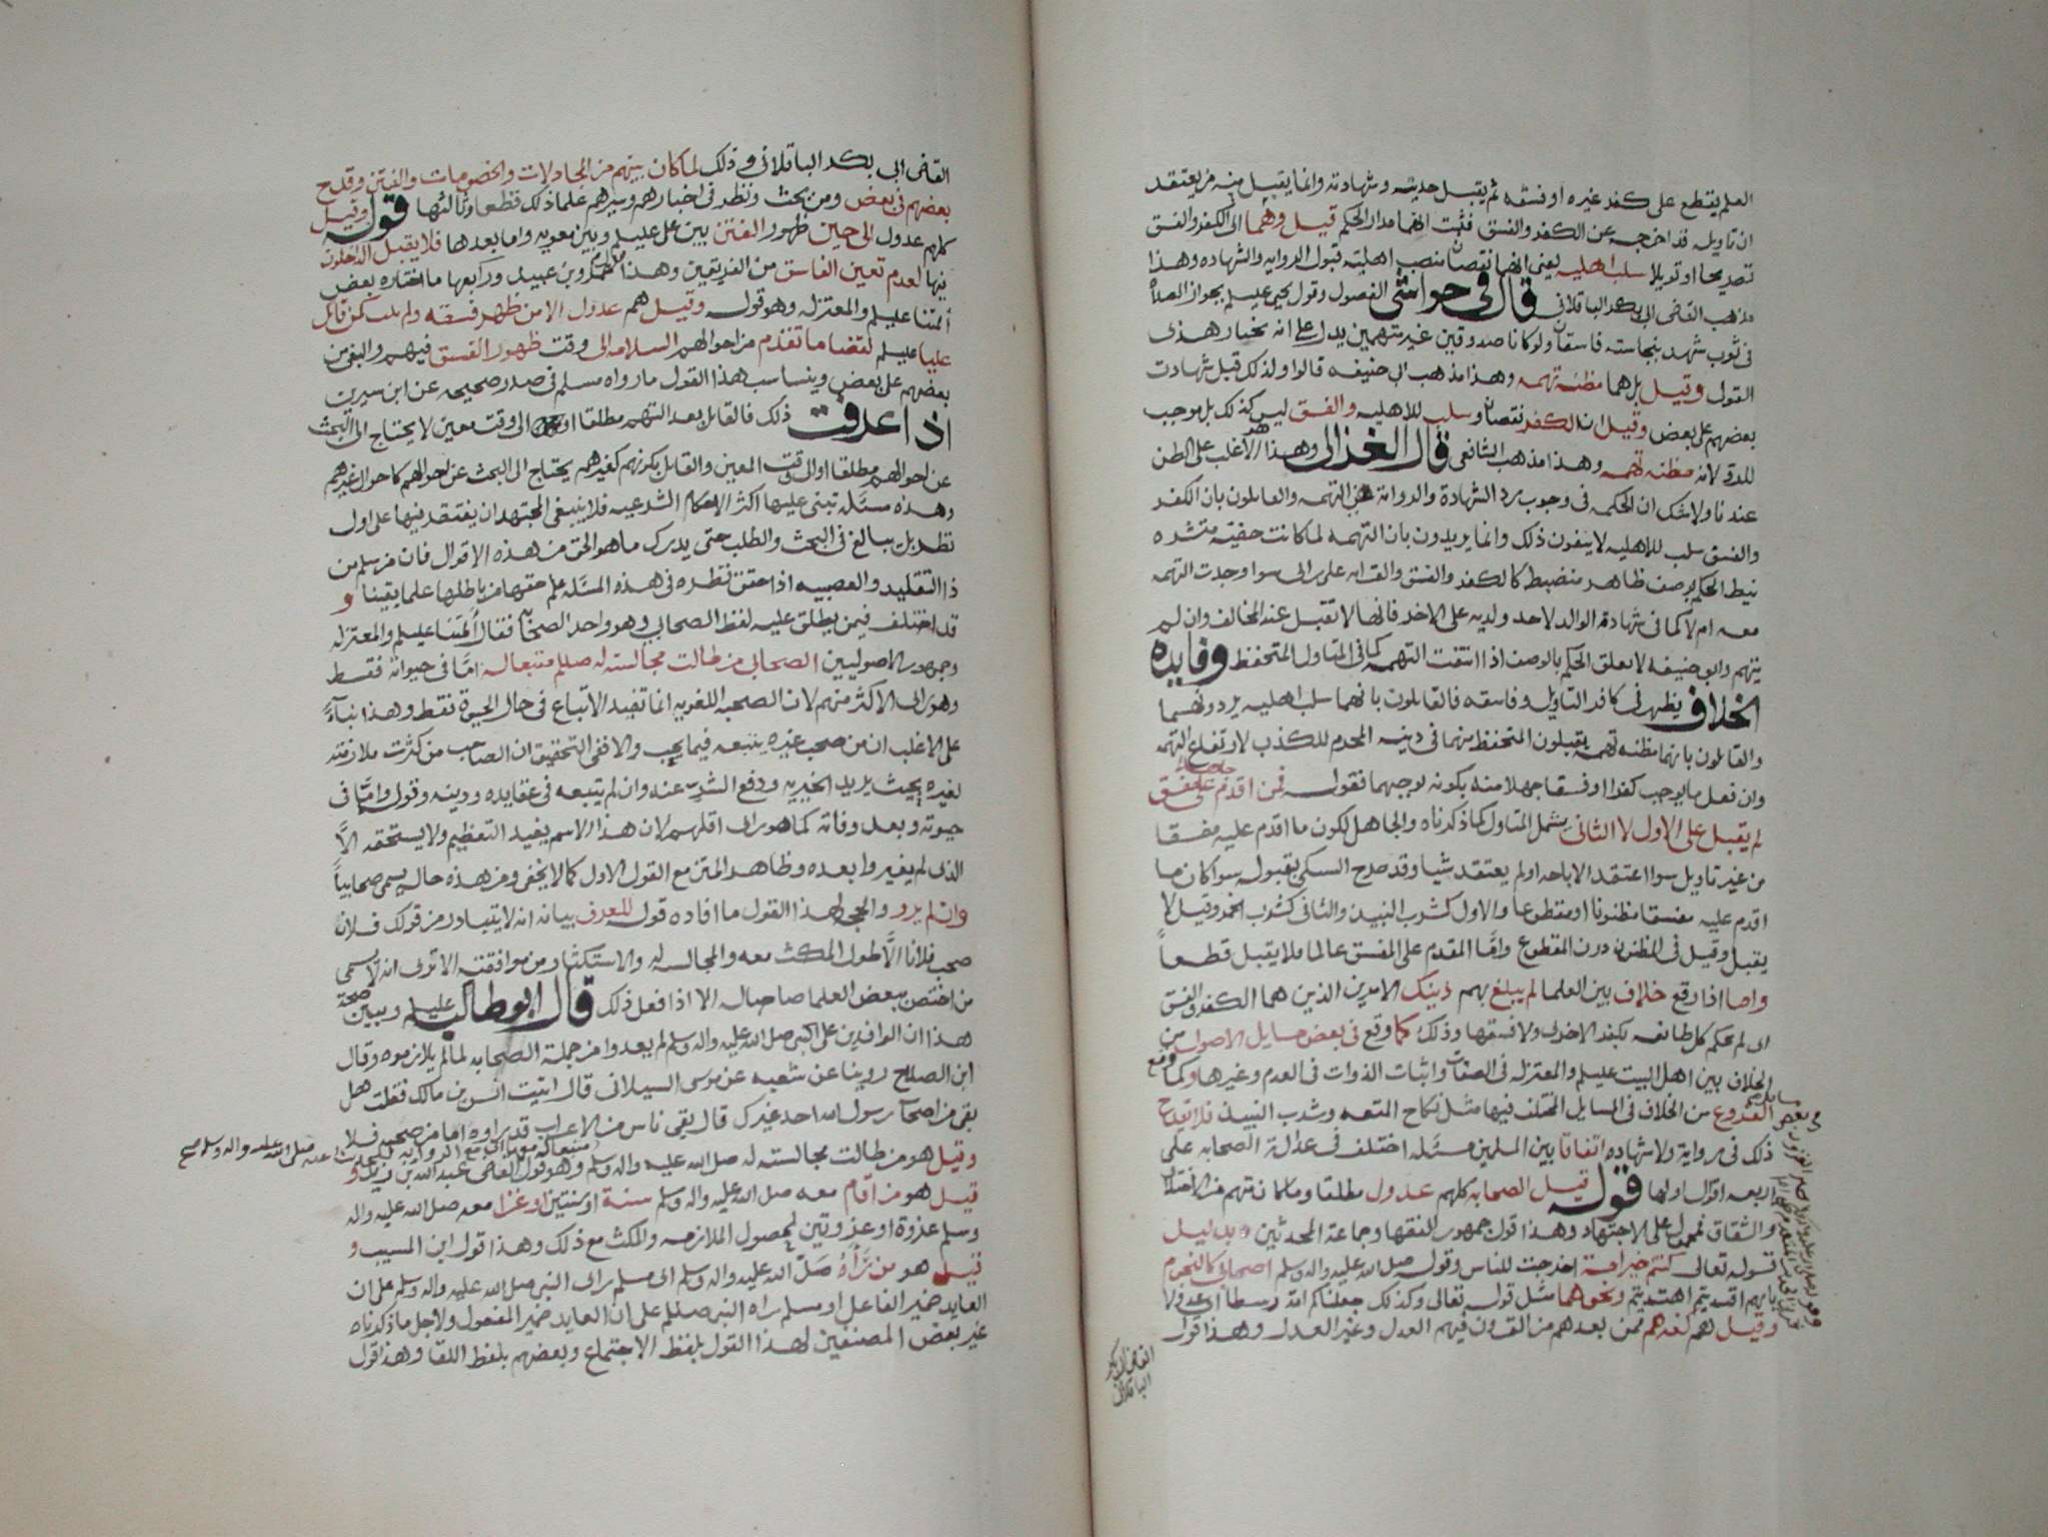 العلم يقطع على كفر غيره او فسقه ثم يقبل حديثه وشهادته وانما يقبل منه من يعتقد
ان تاويله قد اخرجه عن الكفر والفسق فثبت انهما مدار الحكم قيل وهما اى الكفر والفسق
تصريحا او تويلا سلب اهليه يعنى انهما نقصان منصب اهليته قبول الروايه والشهاده وهذا
مذهب القاضى ابى بكر الباقلانى قال فى حواشى الفصول وقول يحيى عليلم بجواز الصلاه
فى ثوب شهد بنجاسته فاسقان ولو كانا صدوقين غير متهمين يدل على انه يختار هذى
القول وقيل بل هما مظنة تهمه وهذا مذهب ابى حنيفه قالوا ولذلك قبل شهادت
بعضهم على بعض وقيل ان الكفر نقصان وسلب للاهليه والفسق ليس كذلك بل موجب
للرد لانه مظنه تهمه وهذا مذهب الشافعى قال الغزالى وهذا هو الاغلب على الظن
عندنا ولا شك ان الحكمه فى وجوب رد الشهادة والروايه هى التهمه والقايلون بان الكفر
والفسق سلب للاهليه لا ينفون ذلك وانما يريدون بان التهمه لما كانت خفية منتشره
نيط الحكم بوصف ظاهر منضبط كالكفر والفسق والقرابه على راى سوا وجدت التهمه
معه ام لا كما فى شهادة الوالد لاحد ولديه على الاخر فانها لا تقبل عند المخالف وان لم
يتهم وابو حنيفه لا يعلق الحكم بالوصف اذا انتفت التهمه كما فى المتاول المتحفظ وفايده
الخلاف يظهر فى كافر التاويل وفاسقه فالقايلون بانهما سلب اهليه يردونهما
والقايلون بانهما مظنه تهمه يقبلون المتحفظ منهما فى دينه المحرم للكذب لارتفاع التهمه
وان فعل ما يوجب كفرا او فسقا جهلا منه بكونه يوجبهما فقوله فمن اقدم على مفسق
جاهلا
لم يقبل على الاول لا الثانى يشمل المتاول كما ذكرناه والجاهل لكون ما اقدم عليه مفسقا
من غير تاويل سوا اعتقد الاباحه او لم يعتقد شيا وقد صرح السبكى بقبوله سوا كان ما
اقدم عليه مفسقا مظنونا او مقطوعا والاول كشرب النبيذ والثانى كشرب الخمر وقيل لا
يقبل وقيل فى المظنون دون المقطوع وامّا المقدم على المفسق عالما فلا يقبل قطعاً
واما اذا وقع خلاف بين العلما لم يبلغ بهم ذينك الامرين الذين هما الكفر والفسق
اى لم يحكم كل طائفه بكفر الاخرى ولا فسقها وذلك كما وقع فى بعض مسايل الاصول من
الخلاف بين اهل البيت عليلم والمعتزله فى الصفات واثبات الذوات فى العدم وغيرها وكما وقع
فى بعض مسايل الفروع من الخلاف فى المسايل المختلف فيها مثل نكاح المتعه وشرب النبيذ فلا يقدح
ذلك فى روايه ولا شهاده اتفاقا بين المسلمين مسئله اختلف فى عدالة الصحابه على
اربعه اقوال اولها قوله قيل الصحابه كلهم عدول مطلقا وما كان بينهم من الاختلاف
والشقاق فمحمول على الاجتهاد وهذا قول جمهور الفقها وجماعة المحدثين بدليل
قوله تعالى كنتم خير امة اخرجت للناس وقوله صلى الله عليه واله وسلم اصحابى كالنجوم
بايهم اقتديتم اهتديتم ونحوهما مثل قوله تعالى وكذلك جعلناكم امة وسطا اى عدولا
وقيل هم كغيرهم ممن بعدهم من القرون فيهم العدل وغير العدل وهذا قول
القاضى ابى بكر
الباقلانى
القاضى ابى بكر الباقلانى وذلك لما كان بينهم من المجادلات والخصومات والفتن وقدح
بعضهم فى بعض ومن بحث ونظر فى اخبارهم وسيرهم علم ذلك قطعا وثالثها قوله وقيل
كلهم عدول الى حين ظهور الفتن بين على عليلم وبين معويه واما بعدها فلا يقبل الداخلون
فيها لعدم تعين الفاسق من الفريقين وهذا كلام عمرو بن عبيد ورابعها ما اختاره بعض
أئمتنا عليلم والمعتزله وهو قوله وقيل هم عدول الا من ظهر فسقه ولم يتب كمن قاتل
عليا عليلم لقضا ما تقدم من احوالهم السلامه الى وقت ظهور الفسق فيهم والبغى من
بعضهم على بعض ويناسب هذا القول ما رواه مسلم فى صدر صحيحه عن ابن سيرين
اذا عرفت ذلك فالقائل بعدالتهم مطلقا او الى وقت معين لا يحتاج الى البحث
عن احوالهم مطلقا او الى وقت المعين والقايل بكونهم كغيرهم يحتاج الى البحث عن احوالهم كاحوال غيرهم
وهذه مسئله تبنى عليها اكثر الاحكام الشرعيه فلا ينبغى للمجتهد ان يقتصر فيها على اول
نظر بل يبالغ فى البحث والطلب حتى يدرك ما هو الحق من هذه الاقوال فان من سلم من
ذا التقليد والعصبيه اذا حقق نظره فى هذه المسئله علم حقها من باطلها علما يقينا و
قد اختلف فيمن يطلق عليه لفظ الصحابى وهو واحد الصحابه فقال أئمتنا عليلم والمعتزله
وجمهور الاصوليين الصحابى من طالت مجالسته له صللم متبعا له امّا فى حيوته فقط
وهو راى الاكثر منهم لان الصحبه اللغويه انما تفيد الاتباع فى حال الحيوة فقط وهذا بناءً
على الاغلب ان من صحب غيره يتبعه فيما يحب والا ففى التحقيق ان الصاحب من كثرت ملازمته
لغيره بحيث يريد الخير به ودفع الشر عنه وان لم يتبعه فى عقايده ودينه وقوله وامّا فى
حيوته وبعد وفاته كما هو راى اقلهم لان هذا الاسم يفيد التعظيم ولا يستحقه الّا
الذى لم يغيروا بعده وظاهر المتن مع القول الاول كما لا يخفى ومن هذه حاله يسمى صحابياً
وان لم يرو والحجه لهذا القول ما افاده قوله للعرف بيانه انه لا يتبادر من قولك فلان
صحب فلانا الّا طول المكث معه والمجالسه له والاستكثار من موافقته الا ترى انه لا يسمى
من اختص ببعض العلما صاحبا له الا اذا فعل ذلك قال ابو طالب عليلم ويبين صحة
هذا ان الوافدين على النبى صلى الله عليه واله وسلم لم يعدوا من جملة الصحابه لما لم يلازموه وقال
ابن الصلاح روينا عن شعبه عن موسى السيلانى قال اتيت انس بن مالك فقلت هل
بقى من اصحاب رسول الله احد غيرك قال بقى ناس من الاعراب قد راوه اما من صحبه فلا
وقيل هو من طالت مجالسته له صلى الله عليه واله وسلم وهو قول القاضى عبد الله بن زيد و
متبعا له مع الروايه عنه صلى الله عليه واله وسلم صح
قيل هو من اقام معه صلى الله عليه واله وسلم سنة او سنتين او غزا معه صلى الله عليه واله
وسلم غزوة او غزوتين لحصول الملازمه والمكث مع ذلك وهذا قول ابن المسيب و
قيل هو من رَآهُ صلى الله عليه واله وسلم اى مسلم راى النبى صلى الله عليه واله وسلم على ان
العايد ضمير الفاعل او مسلم راه النبى صللم على ان العايد ضمير المفعول ولاجل ما ذكرناه
غير بعض المصنفين لهذا القول بلفظ الاجتماع وبعضهم بلفظ اللقا وهذا قول